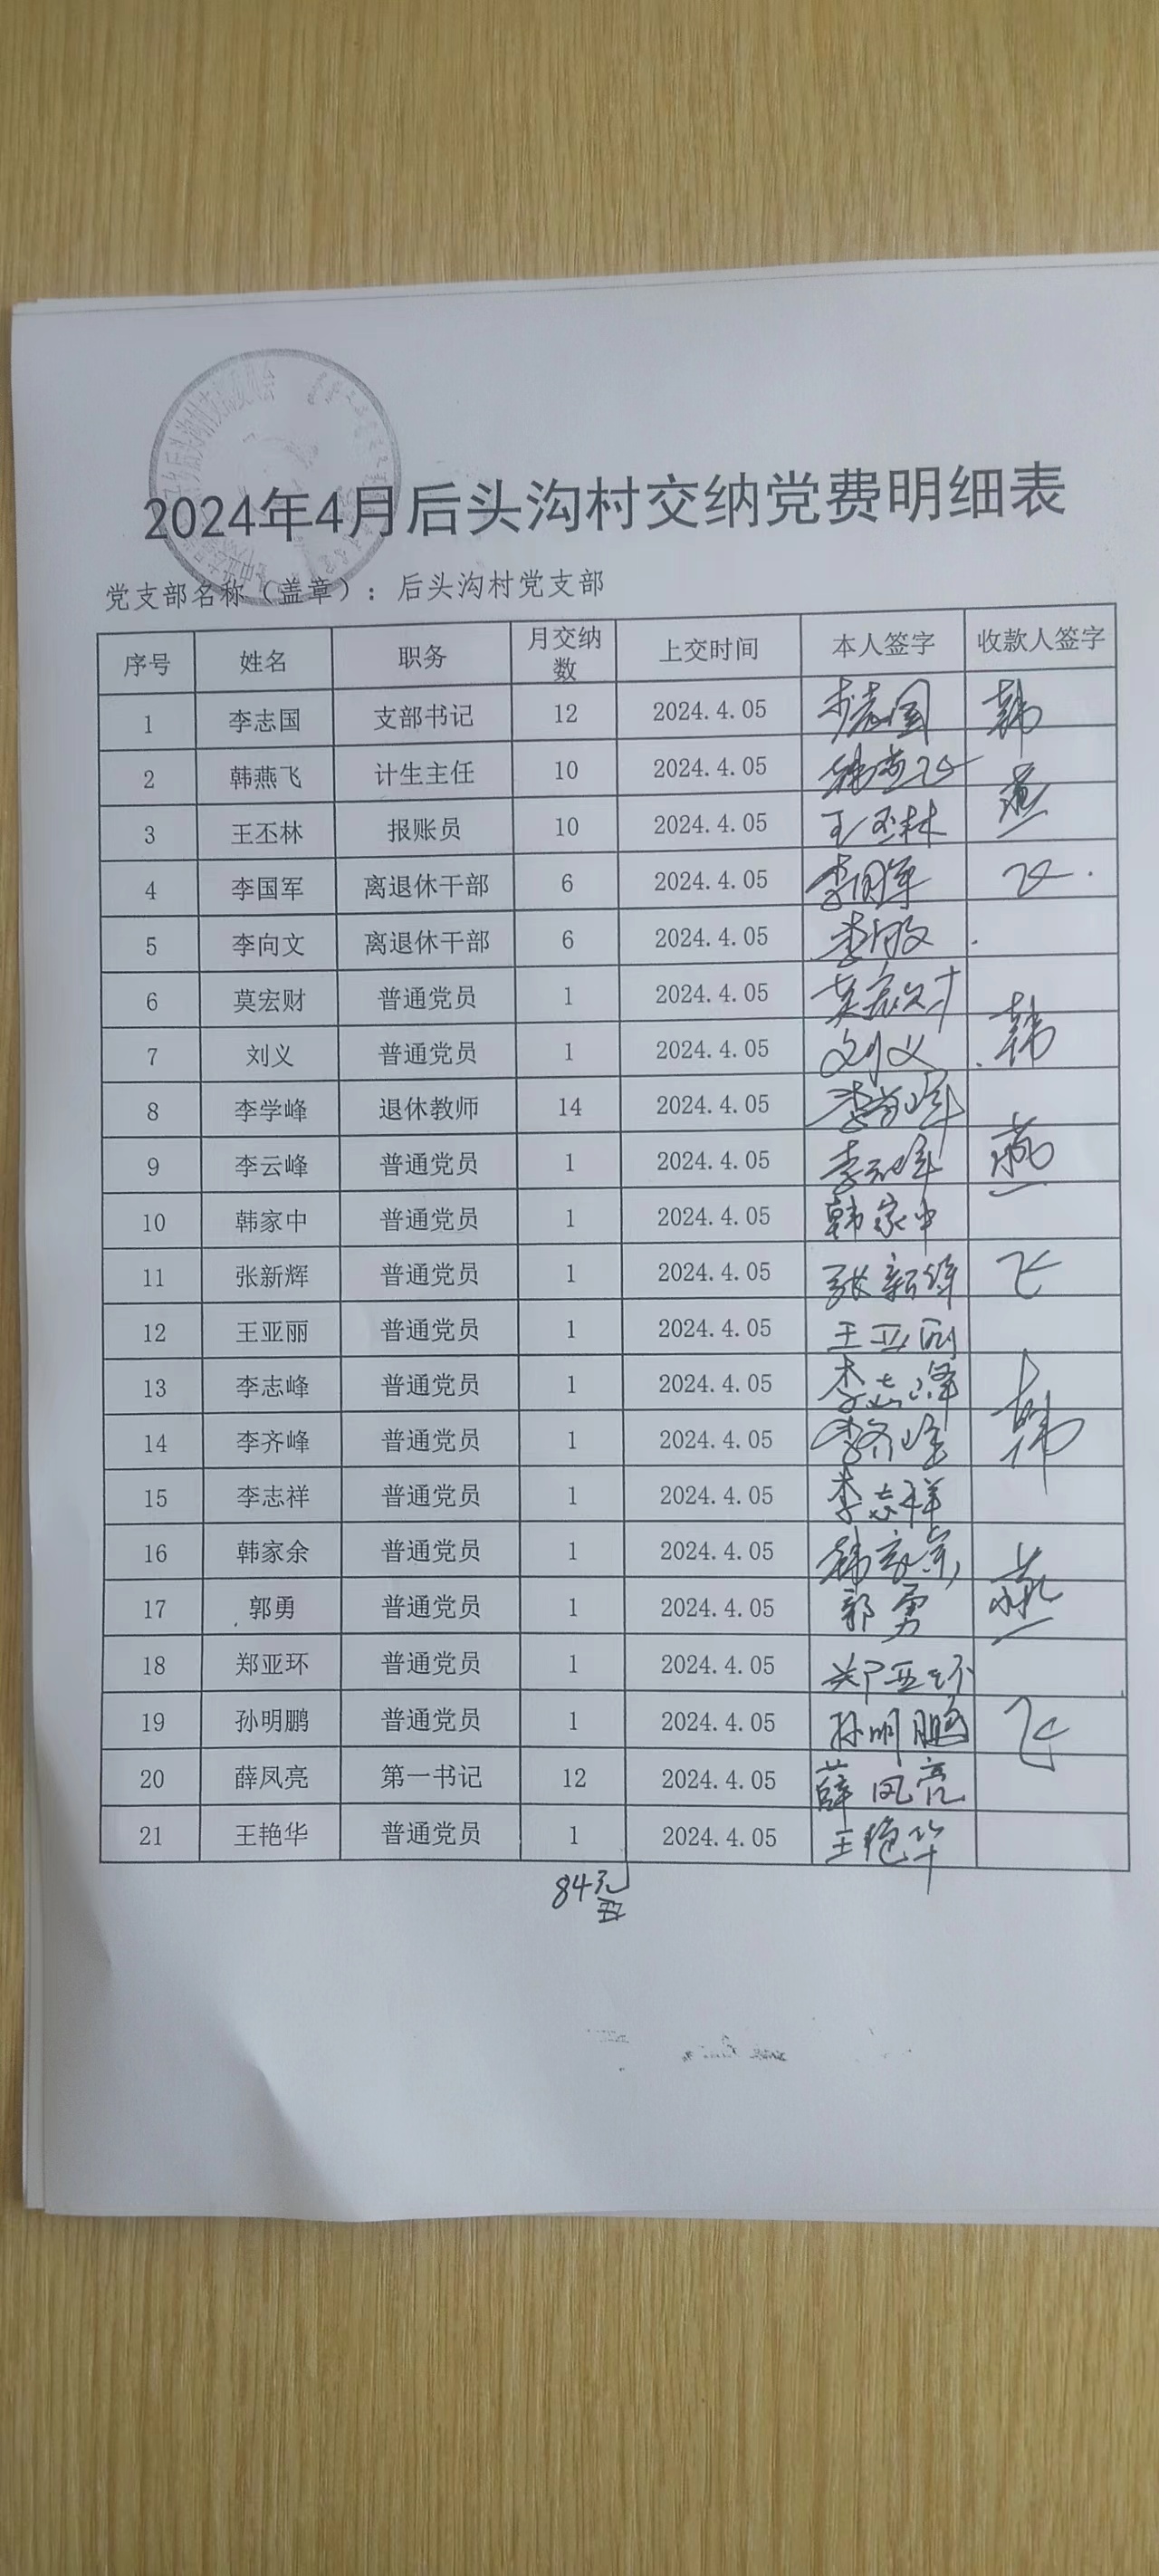 2024年4月后头沟村交纳党费明细表
党支部名称（盖章）：后头沟村党支部
序号 姓名 职务 月交纳数 上交时间 本人签字 收款人签字
1 李志国 支部书记 12 2024.4.05 李志国 韩
2 韩燕飞 计生主任 10 2024.4.05 韩燕飞 燕
3 王丕林 报账员 10 2024.4.05 王丕林
4 李国军 离退休干部 6 2024.4.05 李国军 飞
5 李向文 离退休干部 6 2024.4.05 李向文
6 莫宏财 普通党员 1 2024.4.05 莫宏财
7 刘义 普通党员 1 2024.4.05 刘义 韩
8 李学峰 退休教师 14 2024.4.05 李学峰
9 李云峰 普通党员 1 2024.4.05 李云峰 燕
10 韩家中 普通党员 1 2024.4.05 韩家中
11 张新辉 普通党员 1 2024.4.05 张新辉 飞
12 王亚丽 普通党员 1 2024.4.05 王亚丽
13 李志峰 普通党员 1 2024.4.05 李志峰
14 李齐峰 普通党员 1 2024.4.05 李齐峰 韩
15 李志祥 普通党员 1 2024.4.05 李志祥
16 韩家余 普通党员 1 2024.4.05 韩家余
17 郭勇 普通党员 1 2024.4.05 郭勇 燕
18 郑亚环 普通党员 1 2024.4.05 郑亚环
19 孙明鹏 普通党员 1 2024.4.05 孙明鹏 飞
20 薛凤亮 第一书记 12 2024.4.05 薛凤亮
21 王艳华 普通党员 1 2024.4.05 王艳华
84元